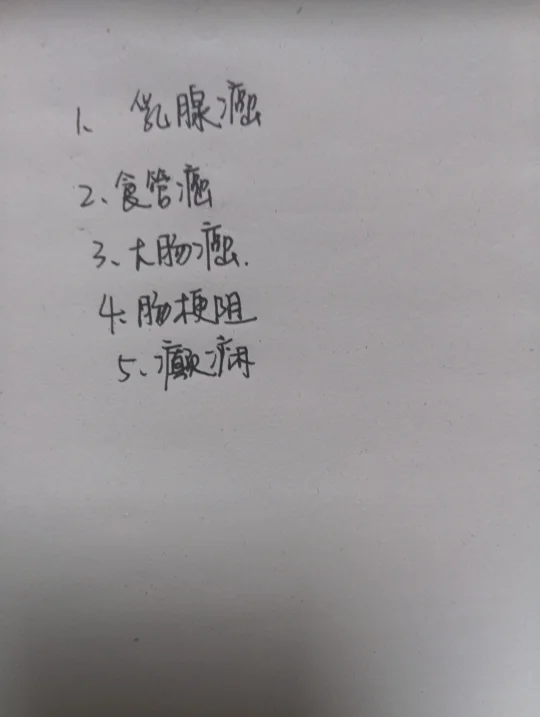 1、乳腺癌
2、食管癌
3、大肠癌.
4、肠梗阻
5、癫痫